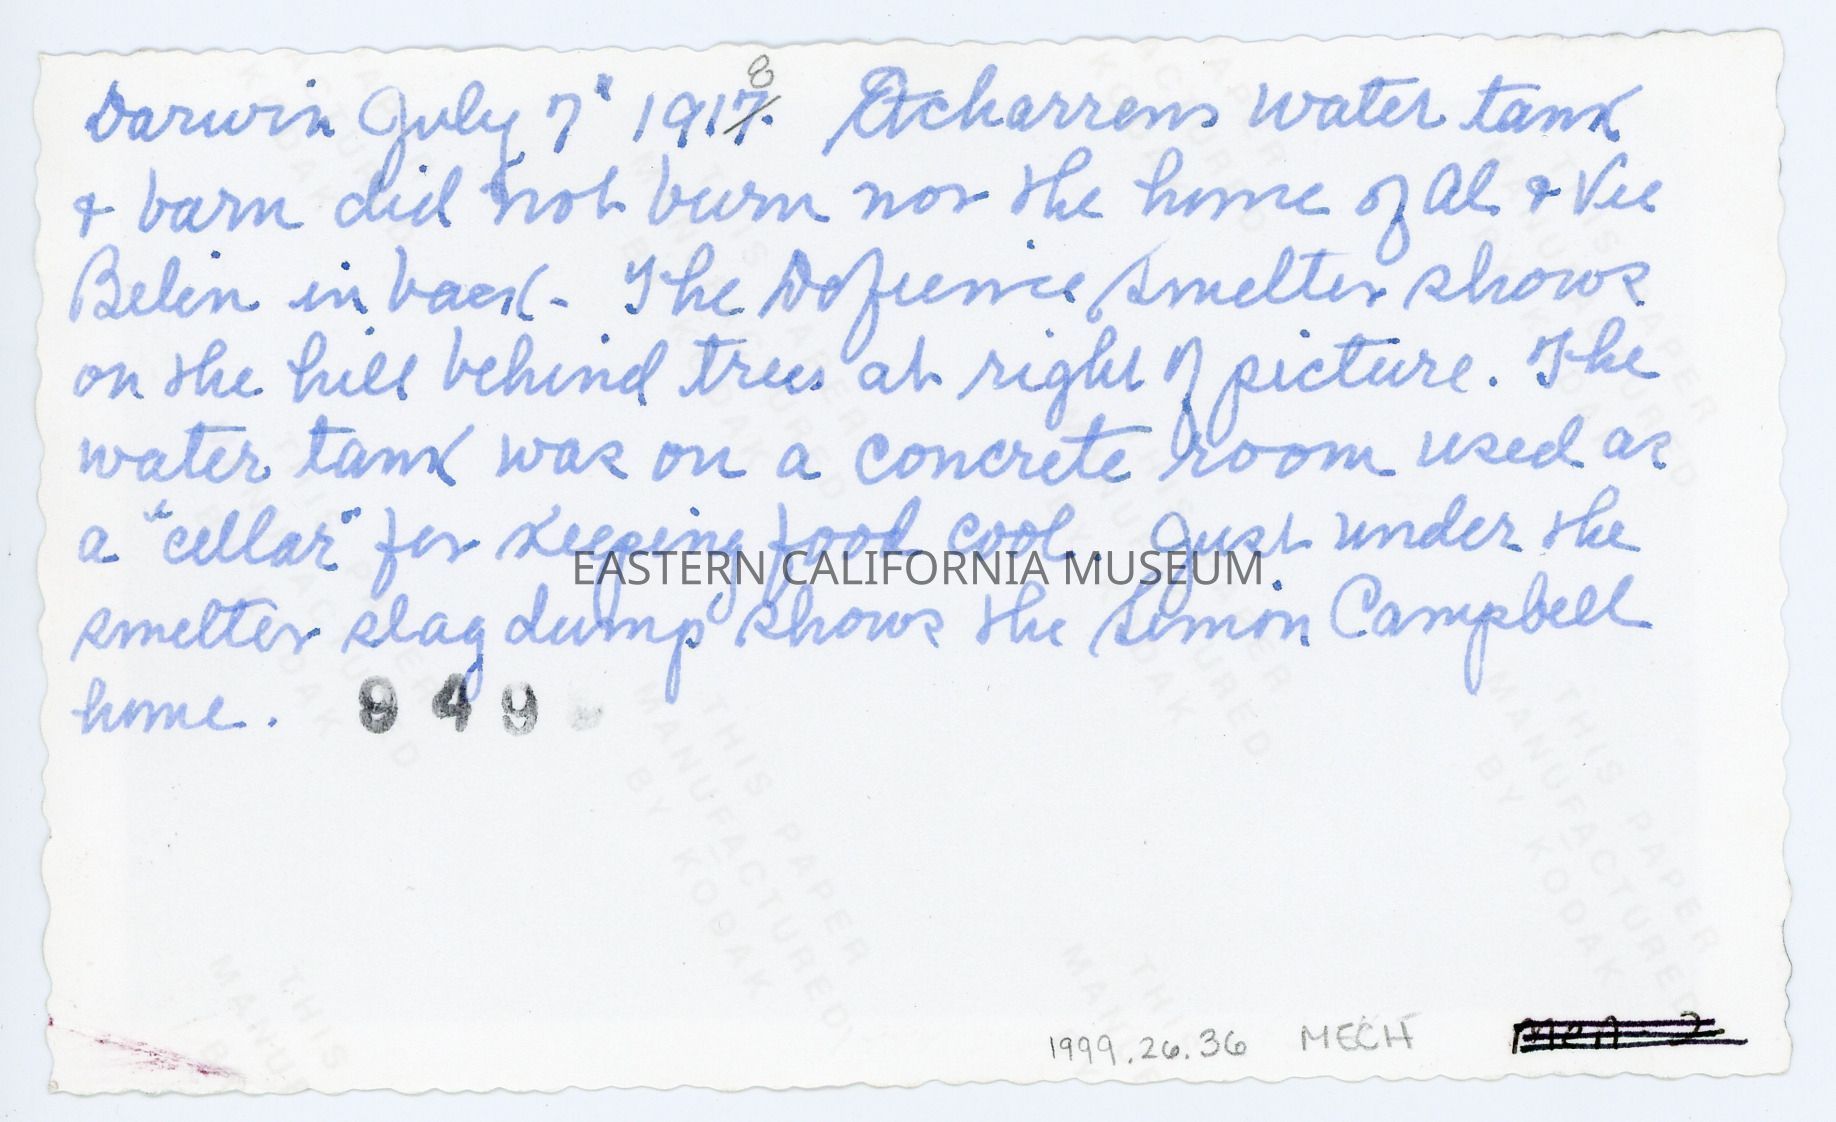 Darwin July 7" 1917. 8 Etcharrens water tank
& barn did not burn nor the home of Al & Vee
Belin in back - The Defience smelter shows
on the hill behind trees at right of picture. The
water tank was on a concrete room used as
a "cellar" for keeping food cool. Just under the
smelter slag dump shows the Simon Campbell
home. 949
EASTERN CALIFORNIA MUSEUM
THIS PAPER
MANUFACTURED
BY KODAK
1999.26.36 MECH